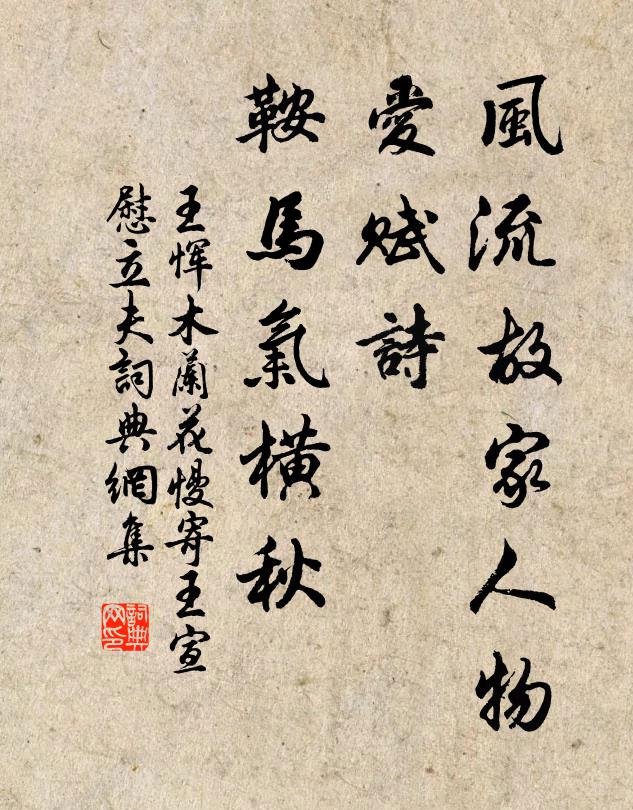 風流故家人物
愛賦詩
鞍馬氣橫秋
王惲木蘭花慢寄王宣
慰立夫詞典網集
詞典网印